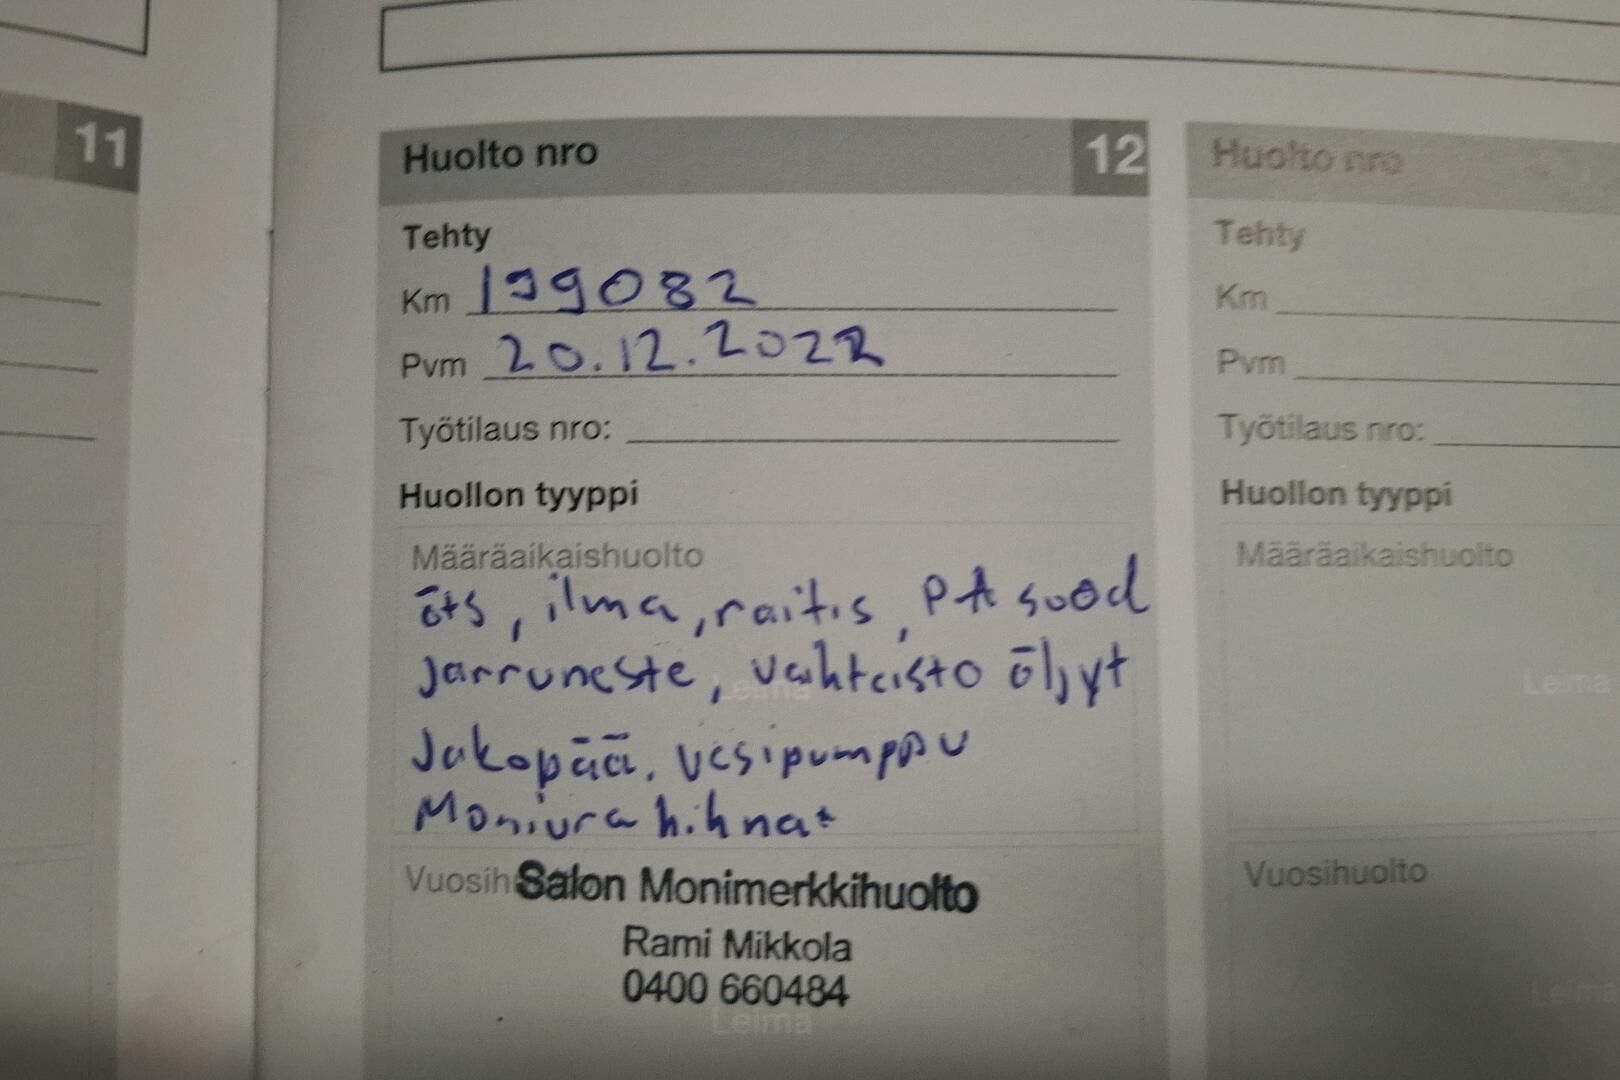 11
Huolto nro 12
Tehty
Km 199082
Pvm 20.12.2022
Työtilaus nro:
Huollon tyyppi
Määräaikaishuolto
öts, ilma, raitis, PA suod
Jarruneste, vaihteisto öljyt
Jakopää, vesipumppu
Moniura hihnat
Leima
Vuosih
Salon Monimerkkihuolto
Rami Mikkola
0400 660484
Leima
Huolto nro
Tehty
Km
Pvm
Työtilaus nro:
Huollon tyyppi
Määräaikaishuolto
Leima
Vuosihuolto
Leima